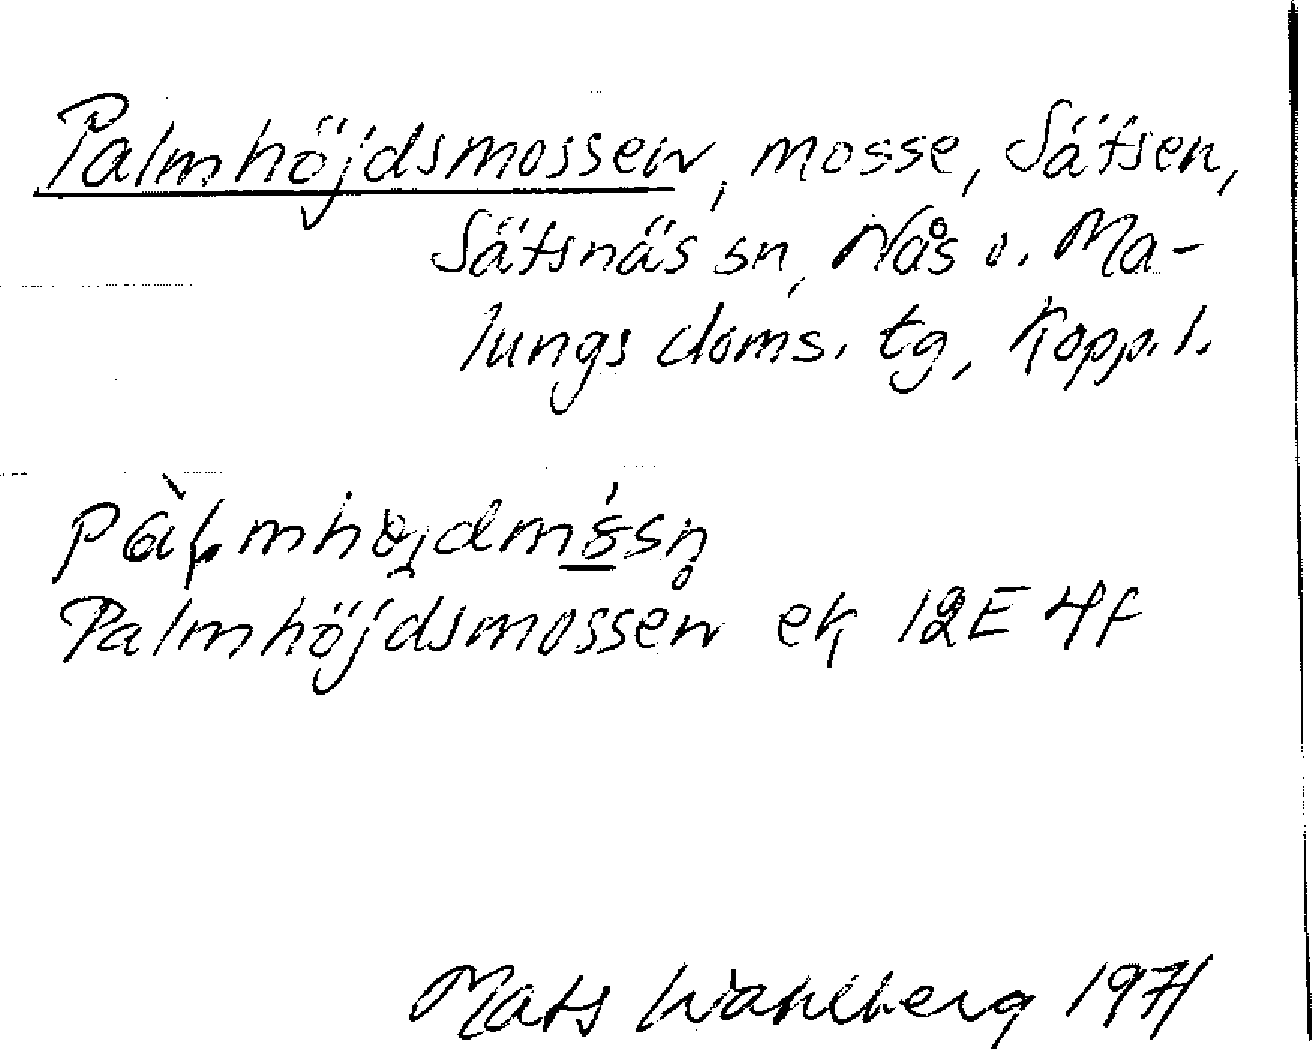 Palmhöjdsmossen, mosse, Sätsen,
Sätsnäs sn, Nås o. Ma-
lungs doms. tg, Kopp. l.
Palmhöjdsmossen ek 12E 4f
Mats Wahlberg 1971